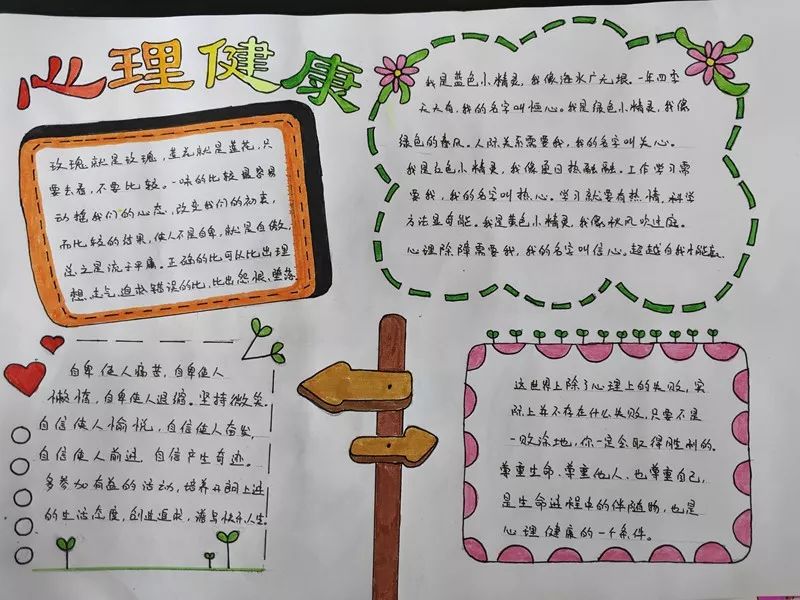 心理健康
玫瑰就是玫瑰，莲花就是莲花，只
要去看，不要比较。一味的比较最容易
动摇我们的心态，改变我们的初衷，
而比较的结果，使人不是自卑，就是自傲，
总之是流于平庸。正确的比可以比出理
想、志气、追求错误的比，比出怨恨、堕落
我是蓝色小精灵，我像海水广无垠。一年四季
天天有，我的名字叫恒心。我是绿色小精灵，我像
绿色的春风。人际关系需要我，我的名字叫关心。
我是红色小精灵，我像夏日热融融。工作学习需
要我，我的名字叫热心。学习就要有热情，科学
方法显奇能。我是黄色小精灵，我像秋风吹过庭。
心理除障需要我，我的名字叫信心。超越自我才能赢
自卑使人痛苦，自卑使人
懒惰，自卑使人退缩。坚持微笑.
自信使人愉悦，自信使人奋发，
自信使人前进，自信产生奇迹。
多参加有益的活动，培养开朗上进
的生活态度，创造逗求，满与快乐人生。
这世界上除了心理上的失败，实
际上并不存在什么失败，只要不是
一败涂地，你一定会取得胜利的。
尊重生命、尊重他人、也尊重自己，
是生命进程中的伴随物，也是
心理健康的一个条件。